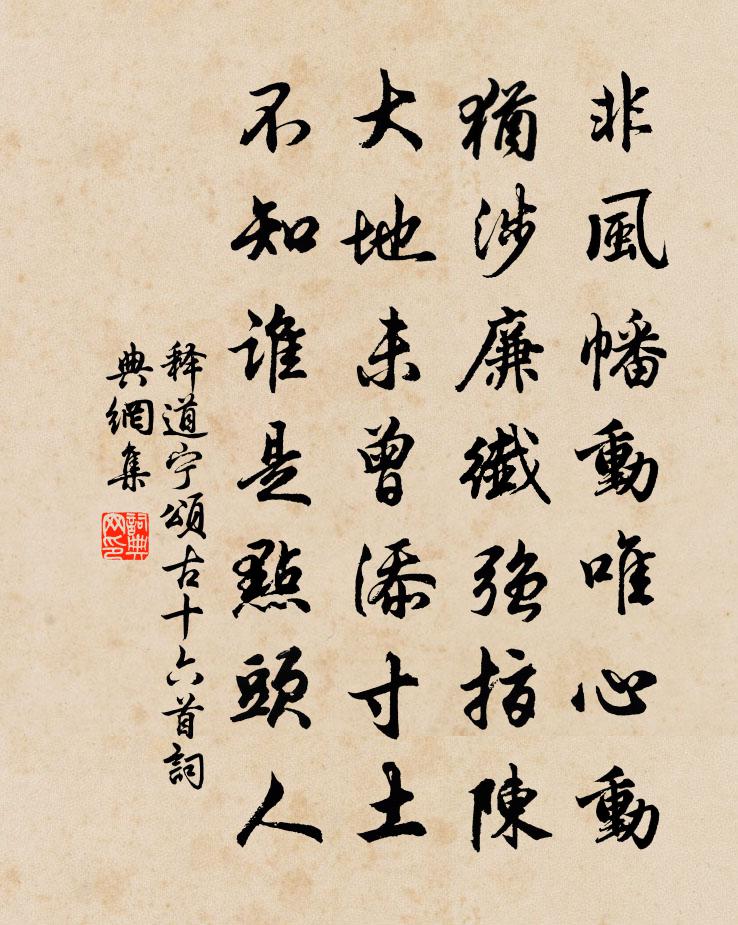 非風幡動唯心動
猶涉廉纖強指陳
大地未曾添寸土
不知誰是點頭人
释道宁頌古十六首詞
典網集
詞典網印